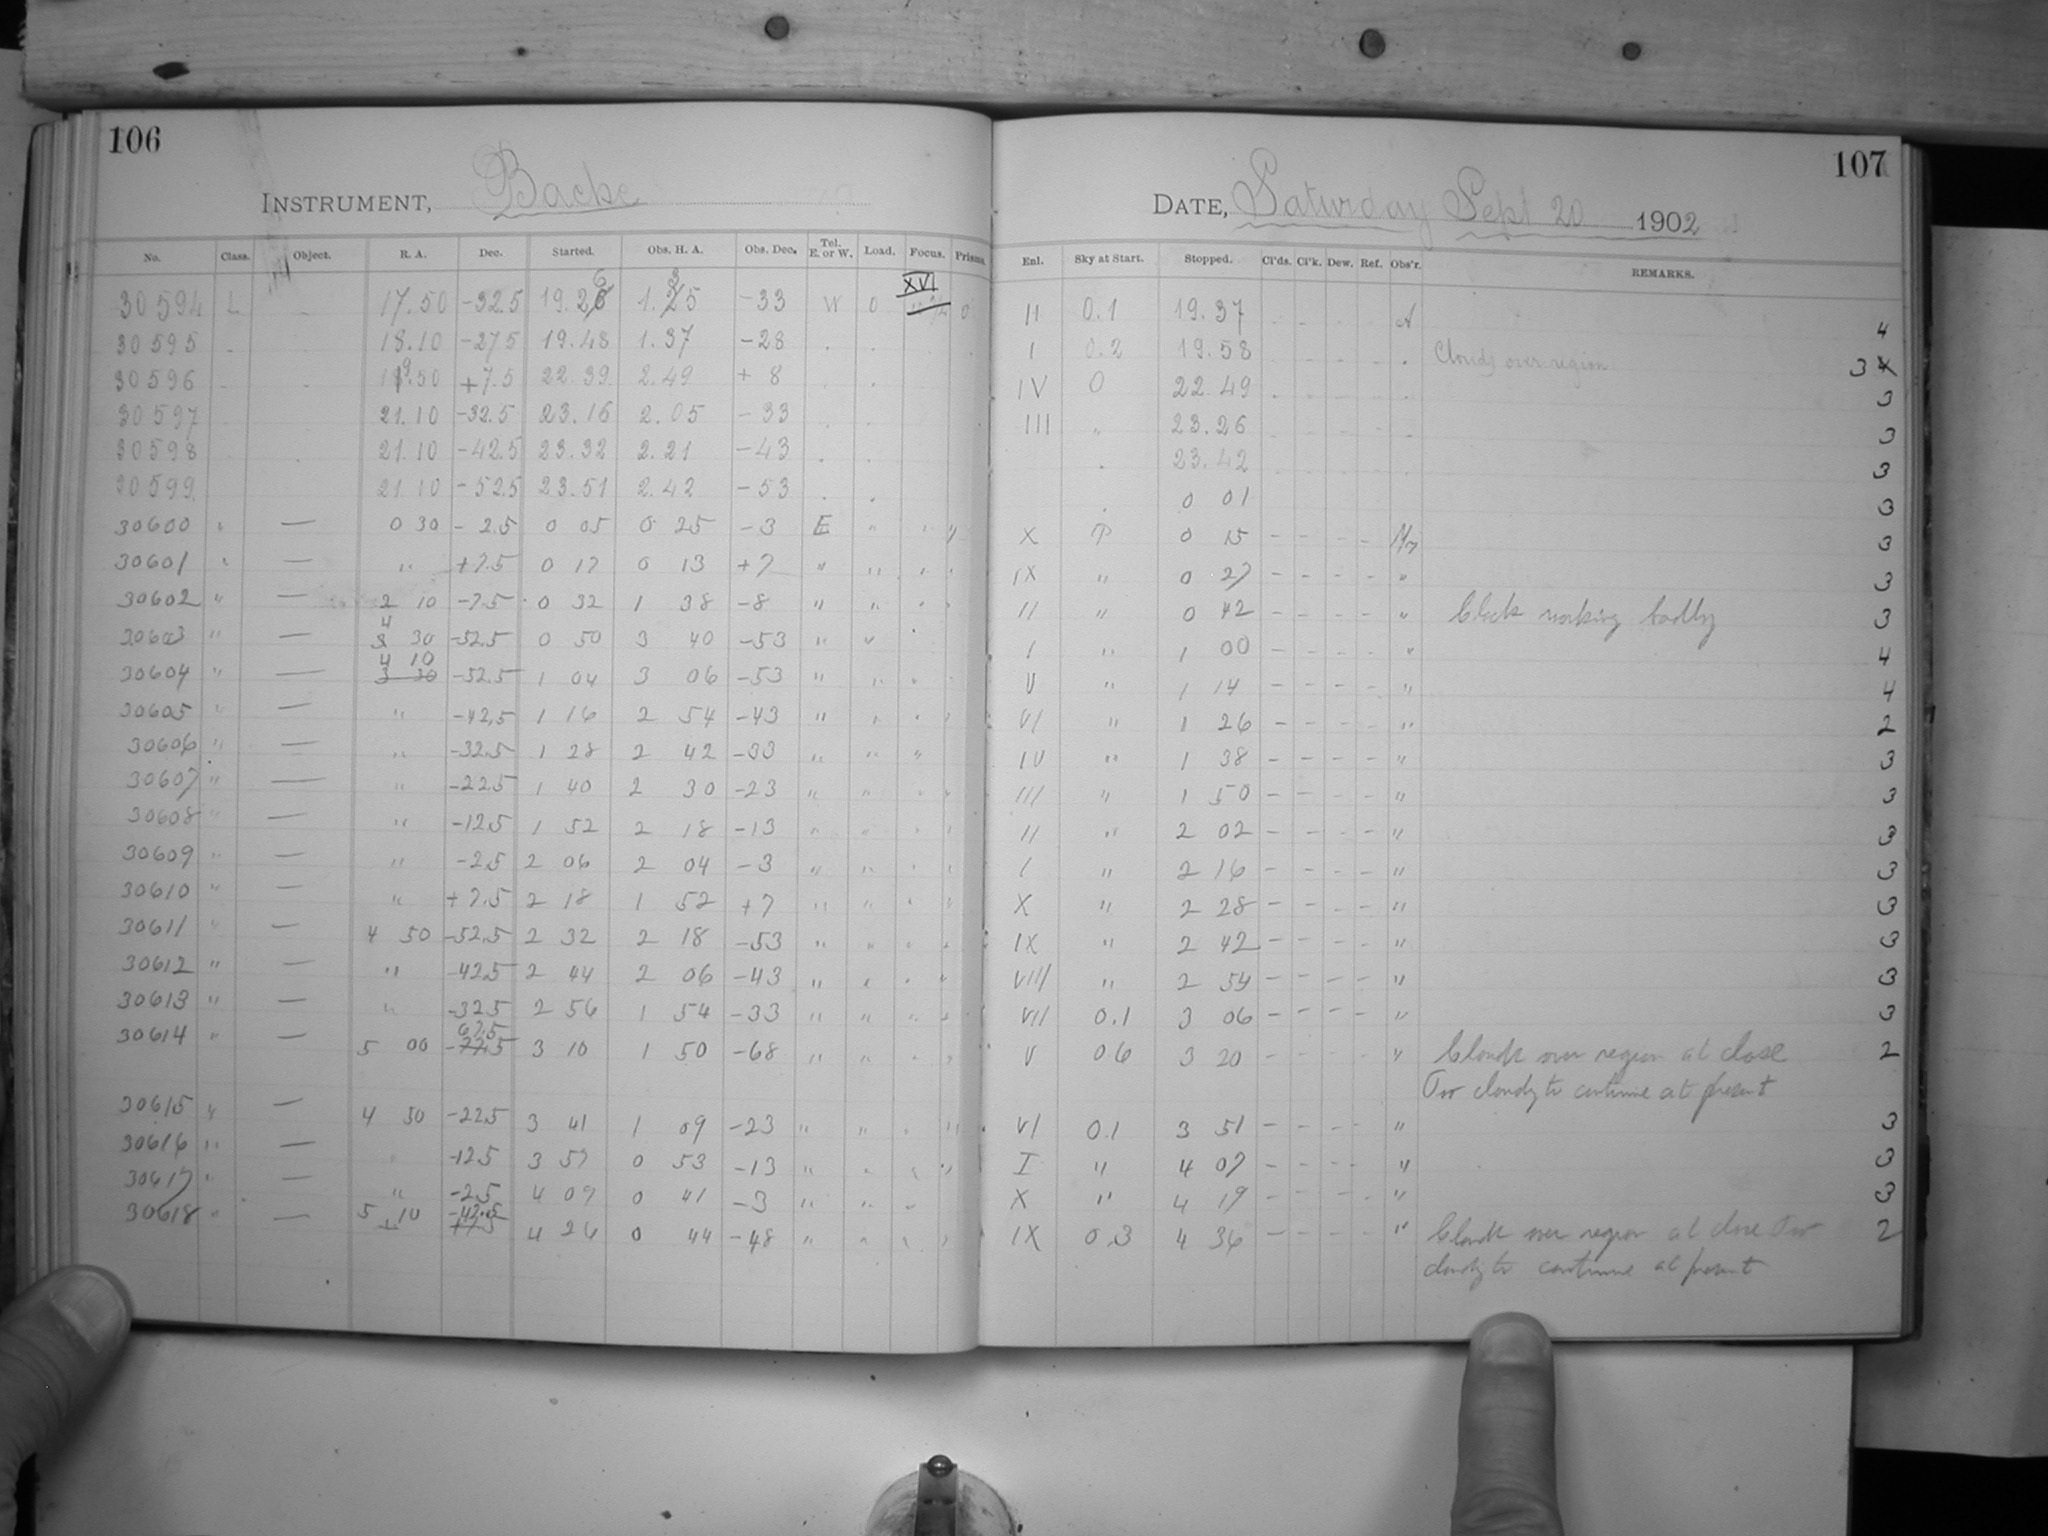 106
INSTRUMENT, Bache
No. Class. Object. R. A. Dec. Started. Obs. H. A. Obs. Dec. Tel. E. or W. Load. Focus. Prisms.
30594 L 17.50 -32.5 19.26 1.35 -33 W 0 XVI 0
30595 18.10 -27.5 19.48 1.37 -28
30596 19.50 +7.5 22.39 2.49 +8
30597 21.10 -32.5 23.16 2.05 -33
30598 21.10 -42.5 23.32 2.21 -43
30599 21.10 -52.5 23.51 2.42 -53
30600 " — 0 30 -2.5 0 05 0 25 -3 E " " "
30601 " — " +7.5 0 17 0 13 +7 " " " "
30602 " — 2 10 -7.5 0 32 1 38 -8 " " " "
30603 " — 4 30 -52.5 0 50 3 40 -53 " "
30604 " — 4 10 3 30 -52.5 1 04 3 06 -53 " " "
30605 " — " -42.5 1 16 2 54 -43 " " " "
30606 " — " -32.5 1 28 2 42 -33 " " "
30607 " — " -22.5 1 40 2 30 -23 " " " "
30608 " — " -12.5 1 52 2 18 -13 " " " "
30609 " — " -2.5 2 06 2 04 -3 " " " "
30610 " — " +7.5 2 18 1 52 +7 " " " "
30611 " — 4 50 -52.5 2 32 2 18 -53 " " " "
30612 " — " -42.5 2 44 2 06 -43 " " " "
30613 " — " -32.5 2 56 1 54 -33 " " " "
30614 " — 5 00 67.5 3 10 1 50 -68 " " " "
30615 " — 4 50 -22.5 3 41 1 09 -23 " " " "
30616 " — " -12.5 3 57 0 53 -13 " " " "
30617 " — " -2.5 4 09 0 41 -3 " " "
30618 " — 5 10 -42.5 4 26 0 44 -48 " " " "
107
DATE, Saturday Sept 20 1902
Enl. Sky at Start. Stopped. Cl'ds. Cl'k. Dew. Ref. Obs'r. REMARKS.
II 0.1 19.37 4
I 0.2 19.58 Clouds over region 3
IV 0 22.49 3
III " 23.26 3
23.42 3
0 01 3
X 0 15 - - - - 3
IX " 0 27 - - - - " 3
II " 0 42 - - - - " Clock working badly 3
I " 1 00 - - - - " 4
V " 1 14 - - - - " 4
VI " 1 26 - - - - " 2
IV " 1 38 - - - - " 3
III " 1 50 - - - - " 3
II " 2 02 - - - - " 3
I " 2 16 - - - - " 3
X " 2 28 - - - - " 3
IX " 2 42 - - - - " 3
VIII " 2 54 - - - - " 3
VII 0.1 3 06 - - - - " 3
V 06 3 20 - - - - " Clouds over region at close 2
Too cloudy to continue at present
VI 0.1 3 51 - - - - " 3
I " 4 07 - - - - " 3
X " 4 19 - - - - " 3
IX 0.3 4 36 - - - - " Clouds over region at close Too 2
cloudy to continue at present